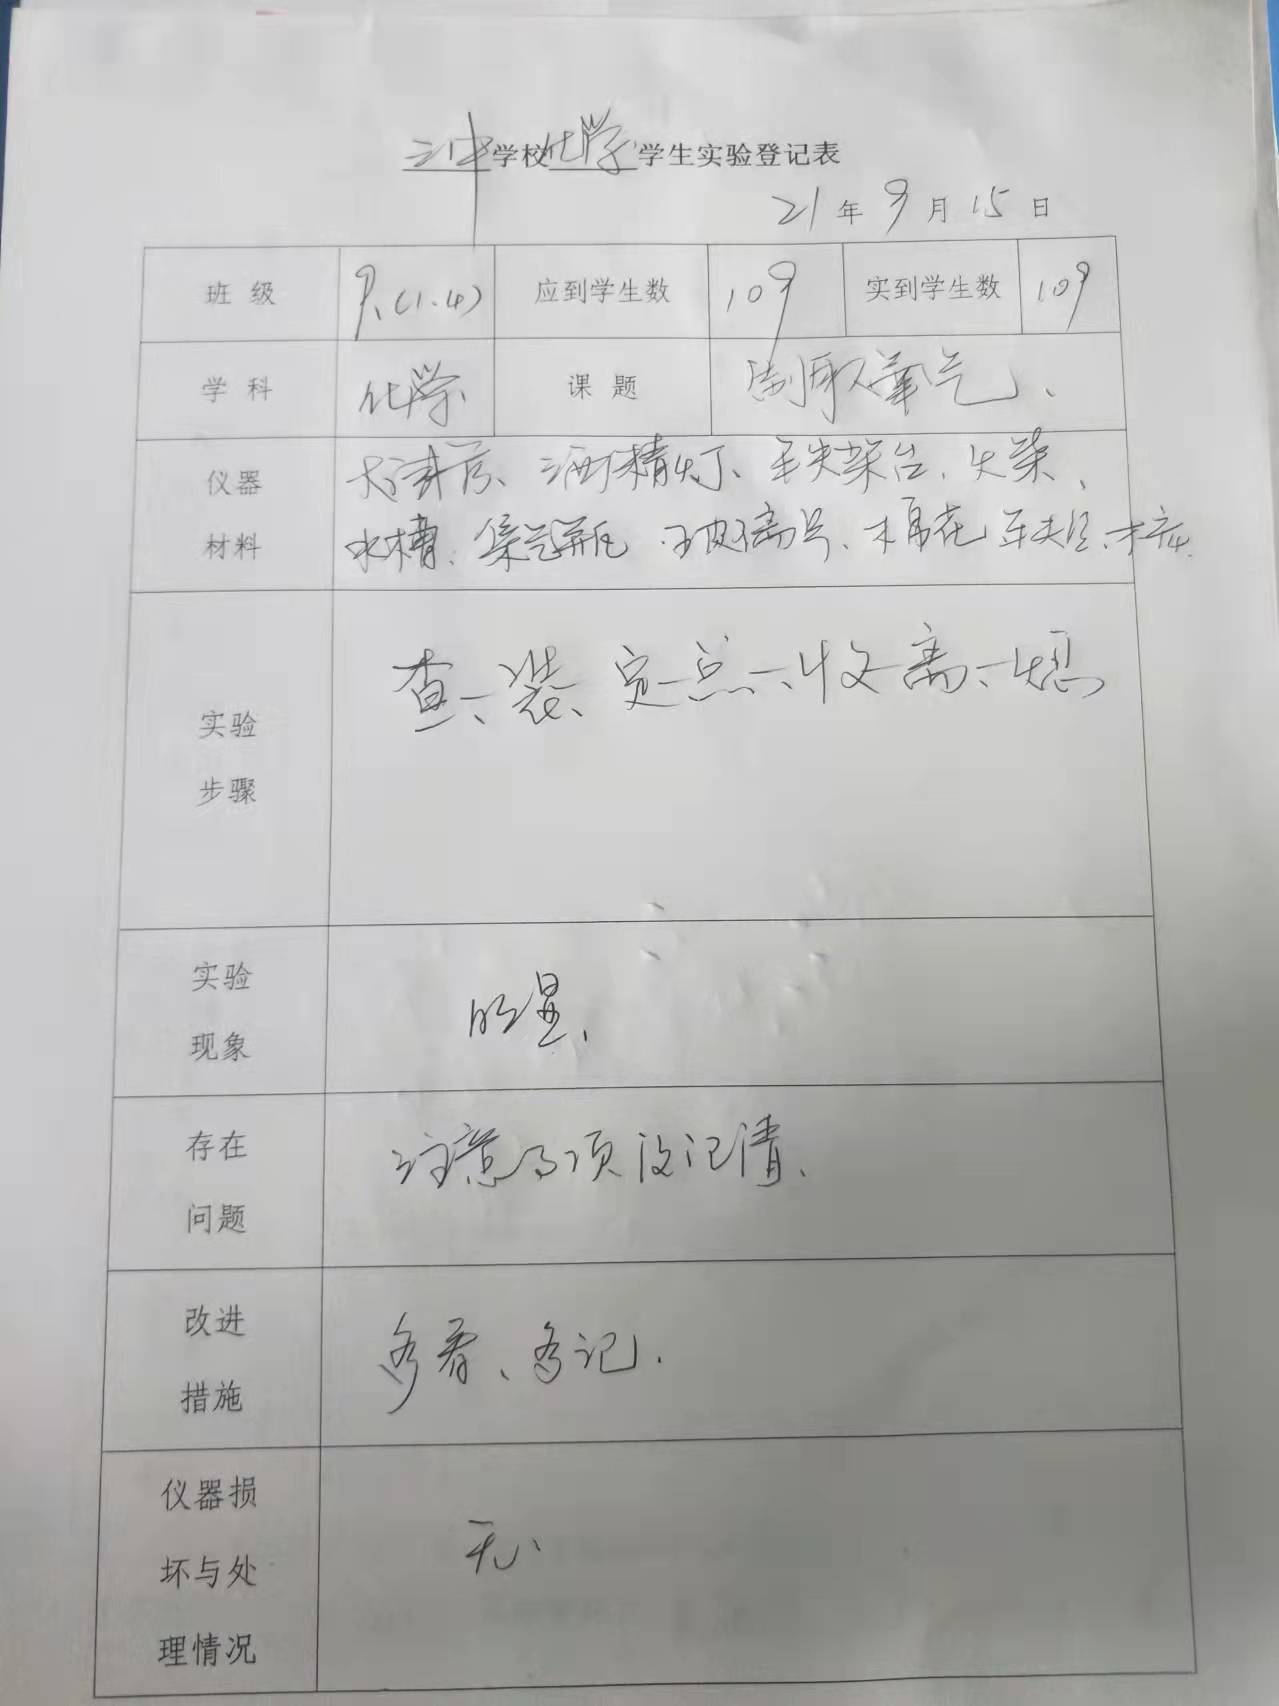 三中学校化学学生实验登记表
21年9月15日
班级 9.(1.4) 应到学生数 109 实到学生数 109
学科 化学 课题 制取氧气、
仪器材料 大试管、酒精灯、铁架台、火柴、
水槽、集气瓶 玻离片、棉花
实验步骤 查、装、定、点、收、离、熄
实验现象 明显、
存在问题 注意事项没记清、
改进措施 多看、多记.
仪器损坏与处理情况 无、